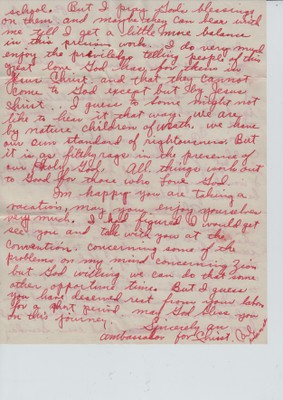 school. But I pray Gods blessing
on them, and maybe they can bear with
me till I get a little more balance
in this precious work. I do very much
enjoy the privilege telling people of this
great love God has for them in
Jesus Christ and that they cannot
come to God except but by Jesus
Christ. I guess to some might not
like to hear it that way. We are
by nature children of wrath, we have
our own standard of righteousness But
it is as filthy rags in the presence of
our Holy God. All things work out
to Good for those who love God.
Im happy you are taking a
vacation, may you enjoy yourselves
very much. I had figured I would get
see you and talk with you at the
Convention concerning some of the
problems on my mind concerning Zion
but God willing we can do that some
other opportune time. But I guess
you have deserved rest from your labor
for a short period may God bless you
on this journey.
Sincerely an
ambassador for Christ,